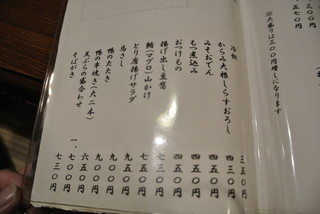 ※大盛りは三〇〇円増しになります
冷奴 三五〇円
からみ大根しらすおろし 四三〇円
みそおでん 四五〇円
もつ煮込み 四五〇円
おつけもの 四五〇円
揚げ出し豆腐 五五〇円
鮪(マグロ)山かけ 七三〇円
とり唐揚げサラダ 七五〇円
馬さし 九五〇円
鴨のたたき 九〇〇円
鴨の串焼き(大二本) 九〇〇円
天ぷらの盛合わせ 一、六五〇円
そばがき 七三〇円